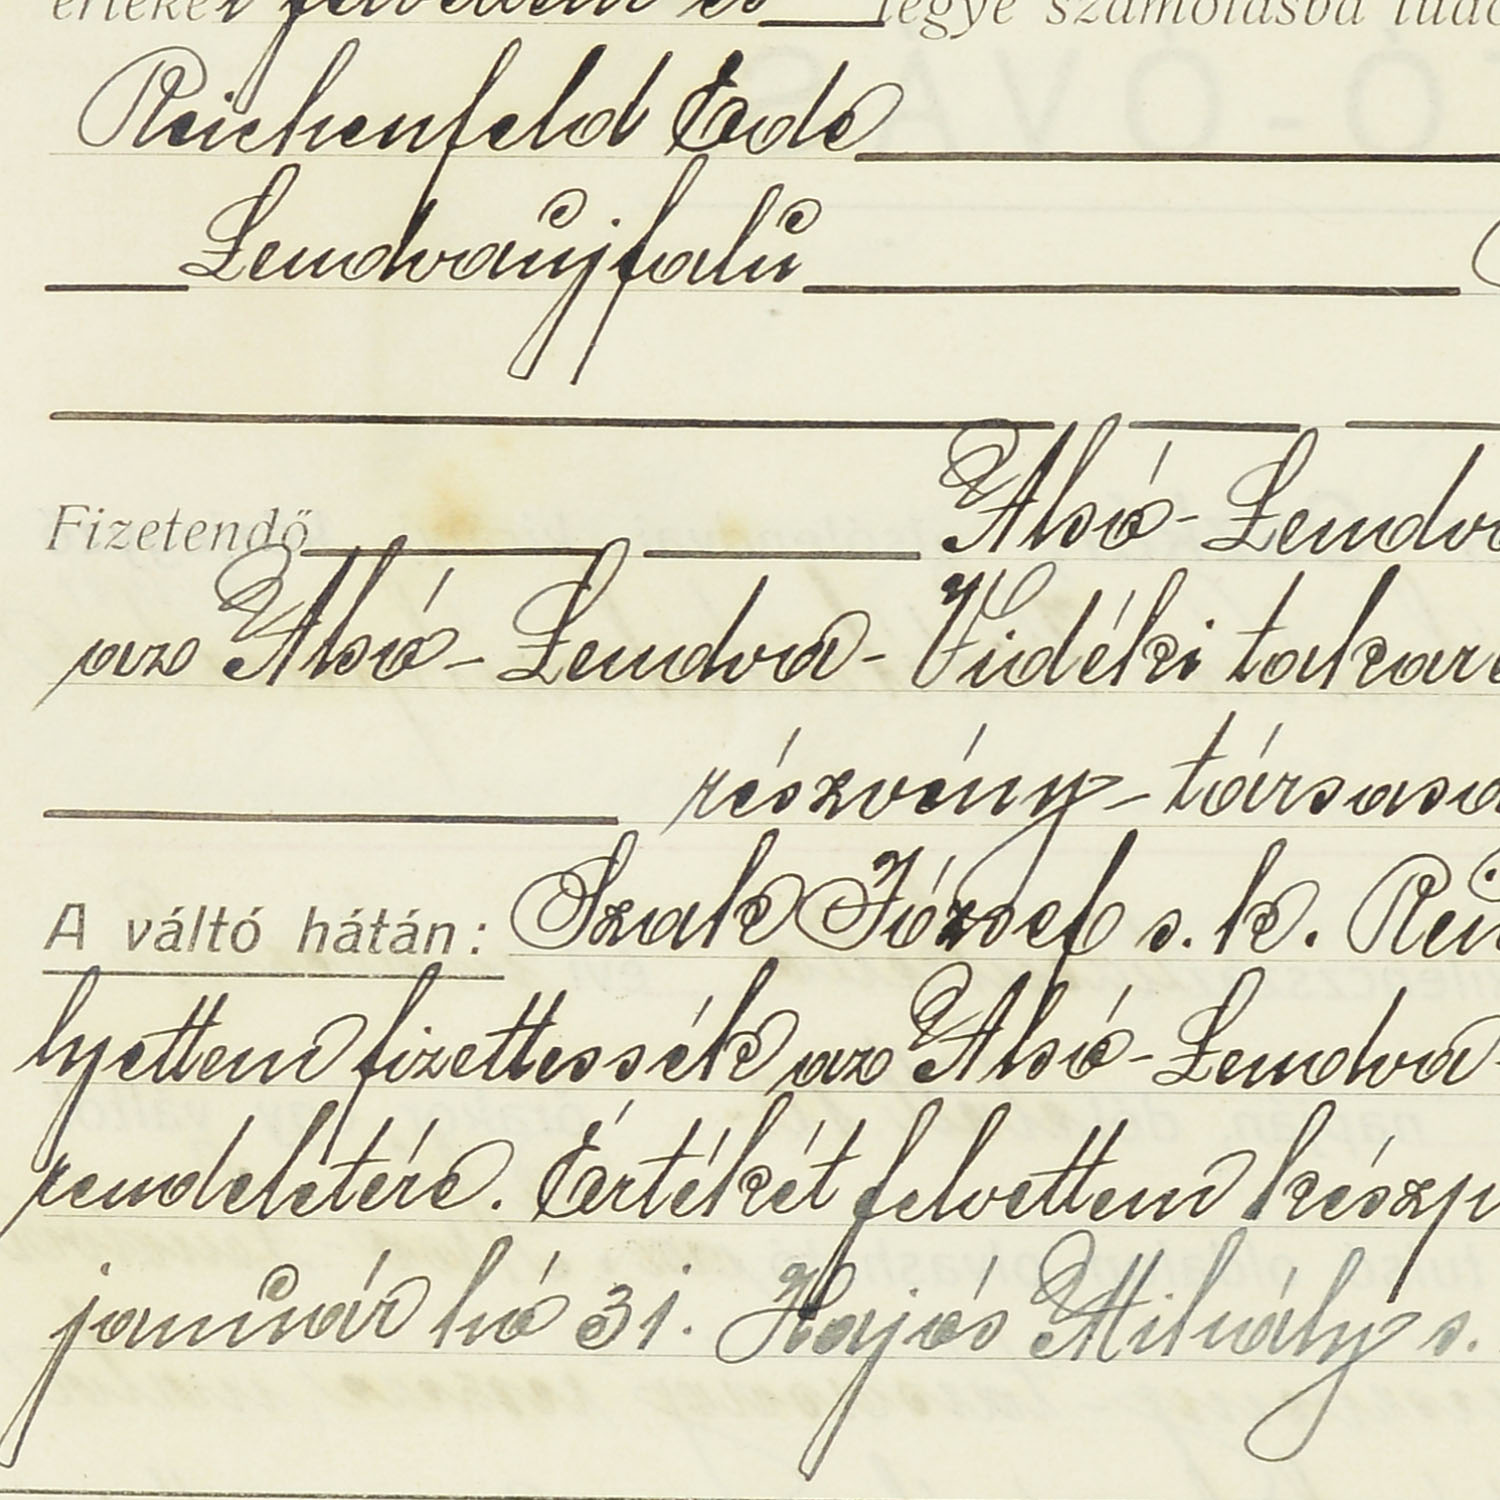 értéket felvettem és legye számolásba tudo
Reichenfeld Ede
Lendvaújfalu
Fizetendő Alsó-Lendva
az Alsó-Lendva-Vidéki takaré
részvény-társasá
A váltó hátán: Szak József s. k. Rei
lyettem fizettessék az Alsó-Lendva-
rendeletére. Értékét felvettem készp
január hó 31. Hajós Mihály s.